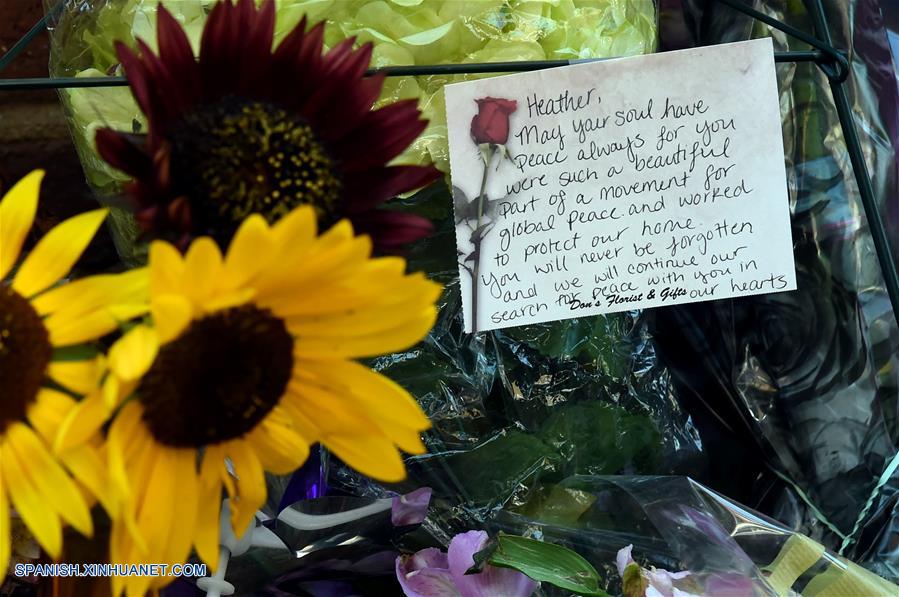 Heather,
May your soul have
peace always for you
were such a beautiful
part of a movement for
global peace and worked
to protect our home.
You will never be forgotten
and we will continue our
search for peace with you in
our hearts
Don's Florist & Gifts
SPANISH.XINHUANET.COM